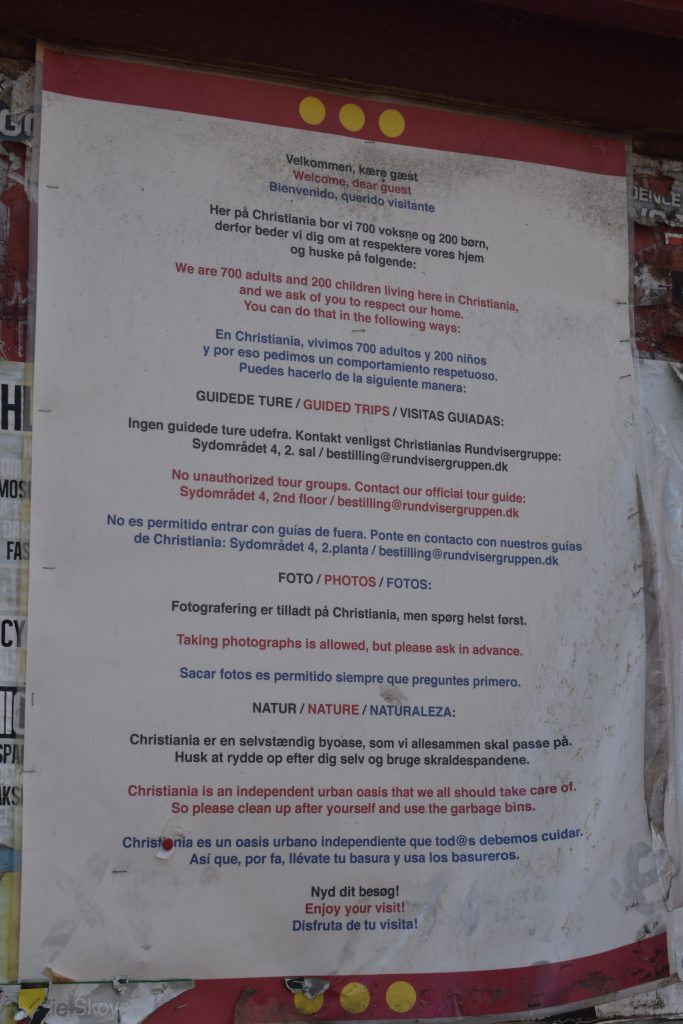 Velkommen, kære gæst
Welcome, dear guest
Bienvenido, querido visitante
Her på Christiania bor vi 700 voksne og 200 børn,
derfor beder vi dig om at respektere vores hjem
og huske på følgende:
We are 700 adults and 200 children living here in Christiania,
and we ask of you to respect our home.
You can do that in the following ways:
En Christiania, vivimos 700 adultos y 200 niños
y por eso pedimos un comportamiento respetuoso.
Puedes hacerlo de la siguiente manera:
GUIDEDE TURE / GUIDED TRIPS / VISITAS GUIADAS:
Ingen guidede ture udefra. Kontakt venligst Christianias Rundvisergruppe:
Sydområdet 4, 2. sal / bestilling@rundvisergruppen.dk
No unauthorized tour groups. Contact our official tour guide:
Sydområdet 4, 2nd floor / bestilling@rundvisergruppen.dk
No es permitido entrar con guías de fuera. Ponte en contacto con nuestros guías
de Christiania: Sydområdet 4, 2.planta / bestilling@rundvisergruppen.dk
FOTO / PHOTOS / FOTOS:
Fotografering er tilladt på Christiania, men spørg helst først.
Taking photographs is allowed, but please ask in advance.
Sacar fotos es permitido siempre que preguntes primero.
NATUR / NATURE / NATURALEZA:
Christiania er en selvstændig byoase, som vi allesammen skal passe på.
Husk at rydde op efter dig selv og bruge skraldespandene.
Christiania is an independent urban oasis that we all should take care of.
So please clean up after yourself and use the garbage bins.
Christiania es un oasis urbano independiente que tod@s debemos cuidar.
Así que, por fa, llévate tu basura y usa los basureros.
Nyd dit besøg!
Enjoy your visit!
Disfruta de tu visita!
Skov